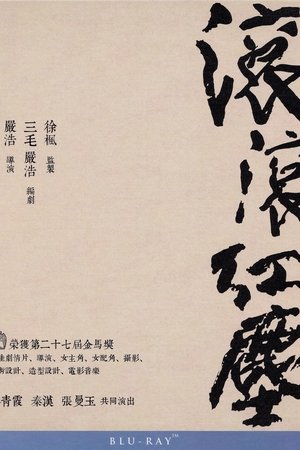 滾滾紅塵
徐楓 監製
三毛 嚴浩 編劇
嚴浩 導演
榮獲第二十七屆金馬獎
佳劇情片、導演、女主角、女配角、攝影、
術設計、造型設計、電影音樂
青霞 秦漢 張曼玉 共同演出
BLU-RAY™